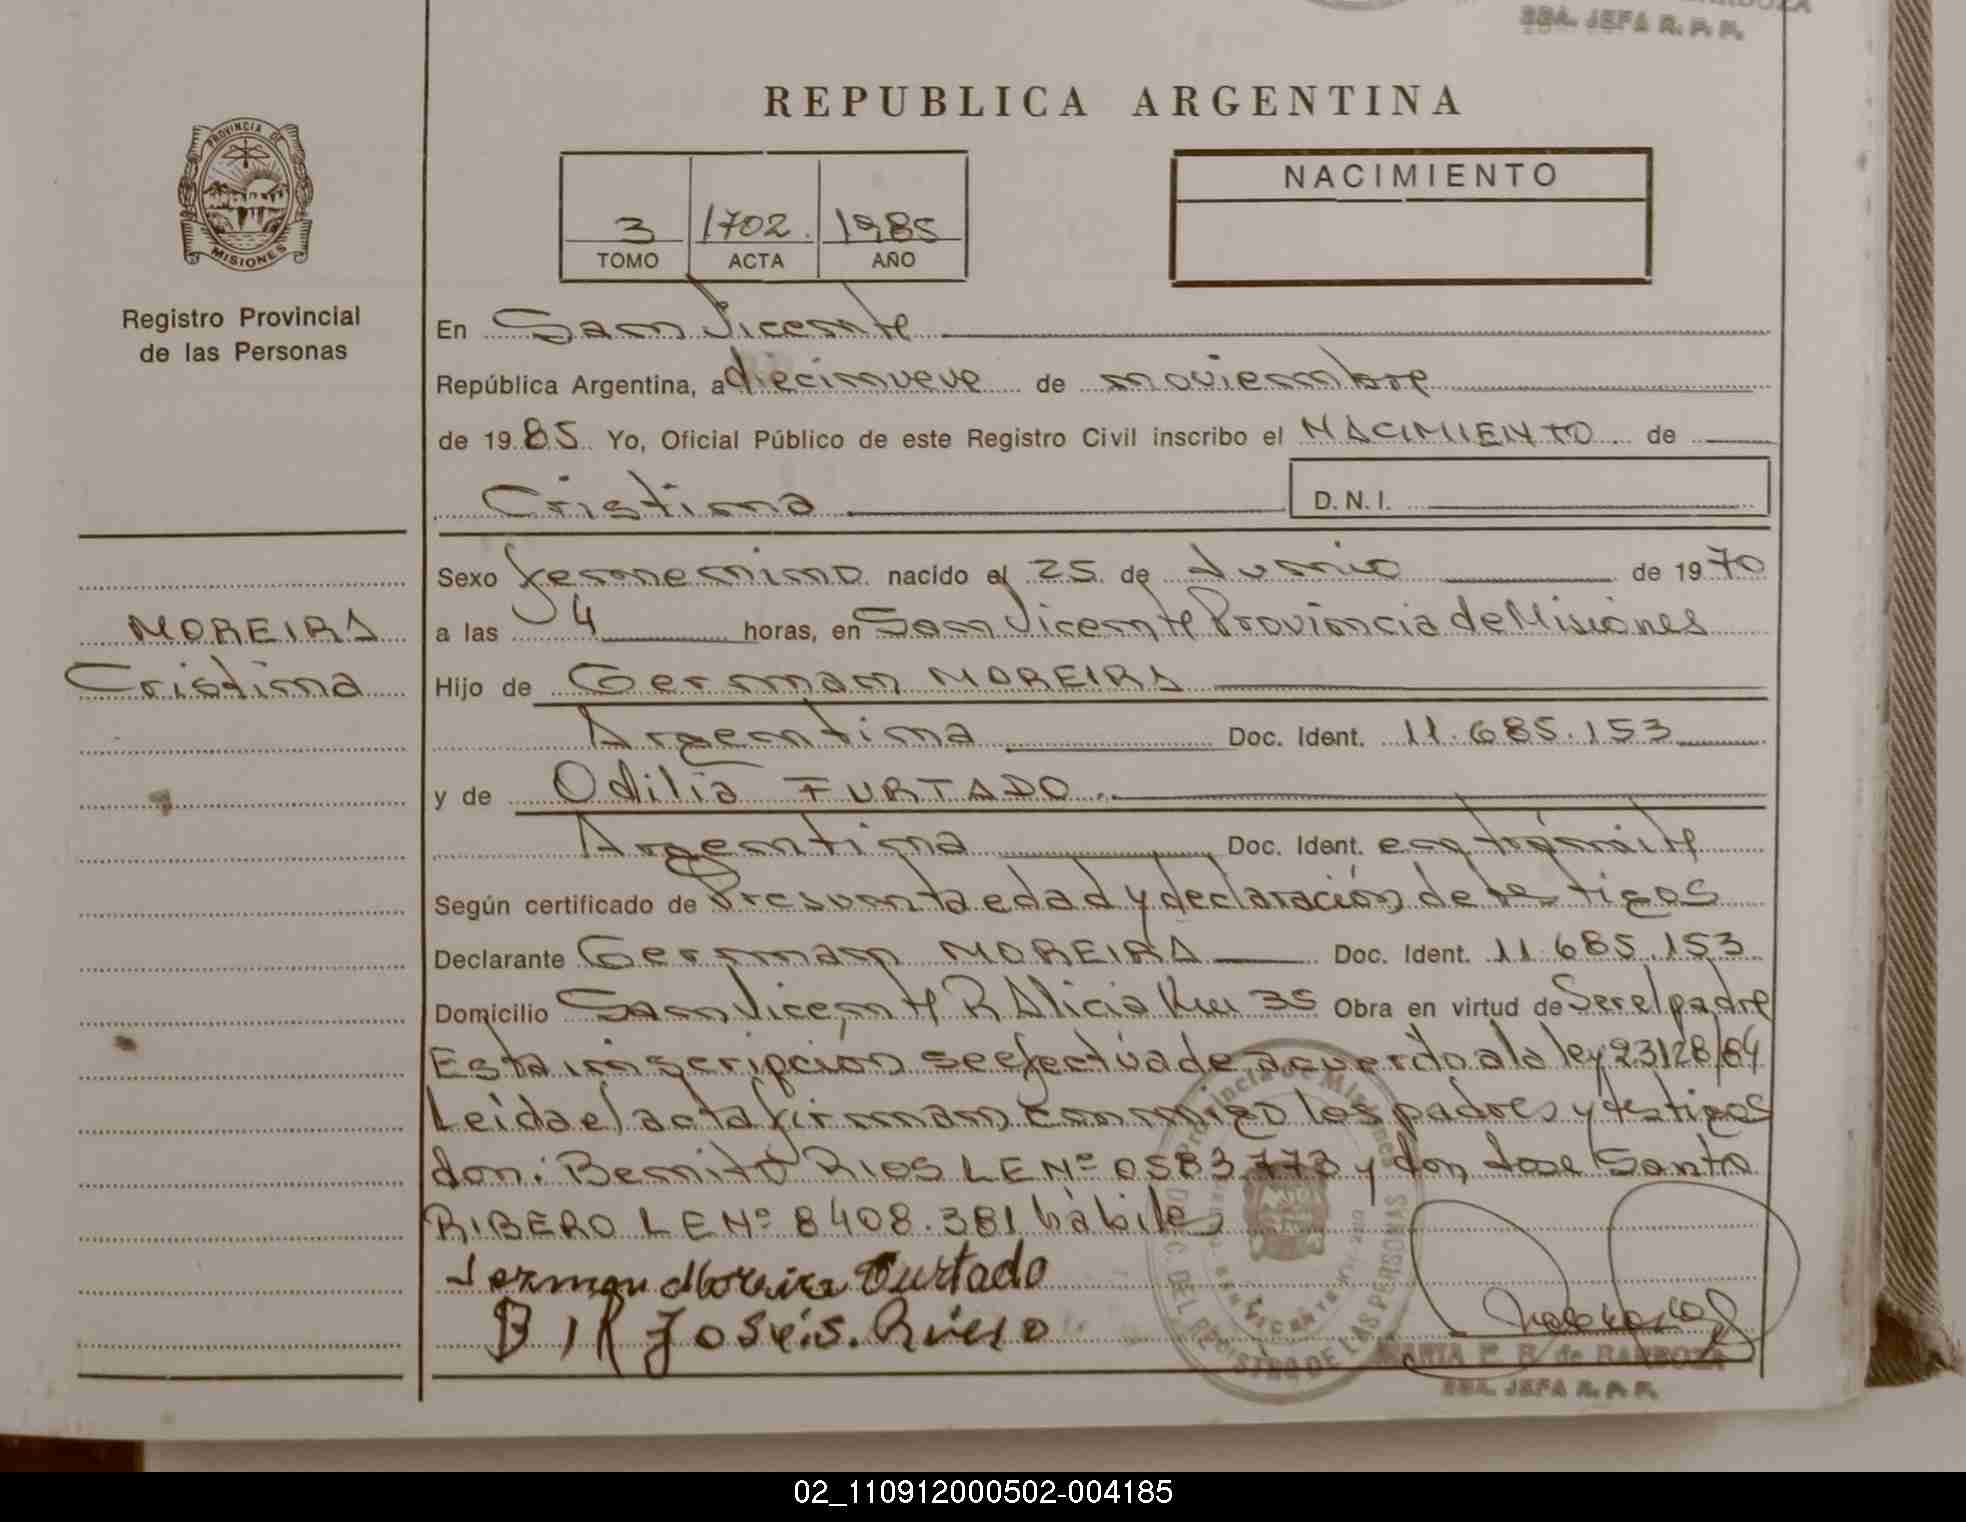 SBA. JEFA R. P. P.
REPUBLICA ARGENTINA
PROVINCIA DE
MISIONES
Registro Provincial
de las Personas
3 1702. 1985
TOMO ACTA AÑO
NACIMIENTO
En San Vicente
República Argentina, a diecinueve de noviembre
de 1985 Yo, Oficial Público de este Registro Civil inscribo el NACIMIENTO de
Cristina D.N.I.
Sexo femenino nacido el 25 de Junio de 1970
MOREIRA
a las 4 horas, en San Vicente Provincia de Misiones
Cristina
Hijo de German MOREIRA
Argentina Doc. Ident. 11.685.153
y de Odilia FURTADO
Argentina Doc. Ident. en trámite
Según certificado de Presunta edad y declaración de testigos
Declarante German MOREIRA Doc. Ident. 11.685.153
Domicilio San Vicente R Alicia Km 35 Obra en virtud de Ser el padre
Esta inscripción se efectúa de acuerdo a la ley 23128/84
Leida el acta firman conmigo los padres y testigos
don: Benito RIOS LE Nº 0583.773 y don Jose Santo
RIBERO LE Nº 8408.381 hábiles
German Moreira Furtado
B I R José S. Rivero
Provincia de Misiones
DEL REGISTRO DE LAS PERSONAS
MARIA F. R. de BARBOZA
SBA. JEFA R. P. P.
02_110912000502-004185